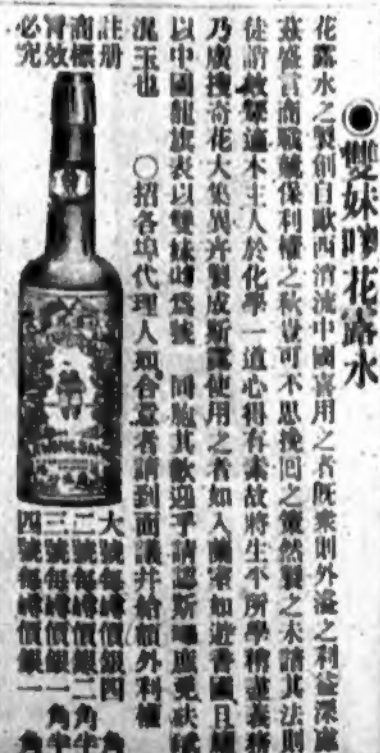 ◉雙妹嘜花露水
花露水之製創自歐西消流中國喜用之者既衆則外溢之利益深
茲盛言商戰競保利權之秋豈可不思挽回之策然製之未諳其法則
徒謂效顰適本主人於化學一道心得有素故將生平所學精盡義務
乃廣搜奇花大集異卉製成斯露使用之者如入蘭室如遊香國且
以中國龍旗表以雙妹嘜爲號 同胞其歡迎乎請認斯嘜庶免
混玉也 ○招各埠代理人如合意者請到面議幷給額外利權
註册
商標
冒效
必究
KWONG SANG
大號每樽價銀四
二號每樽價銀二角
三號每樽價銀一角
四號每樽價銀一